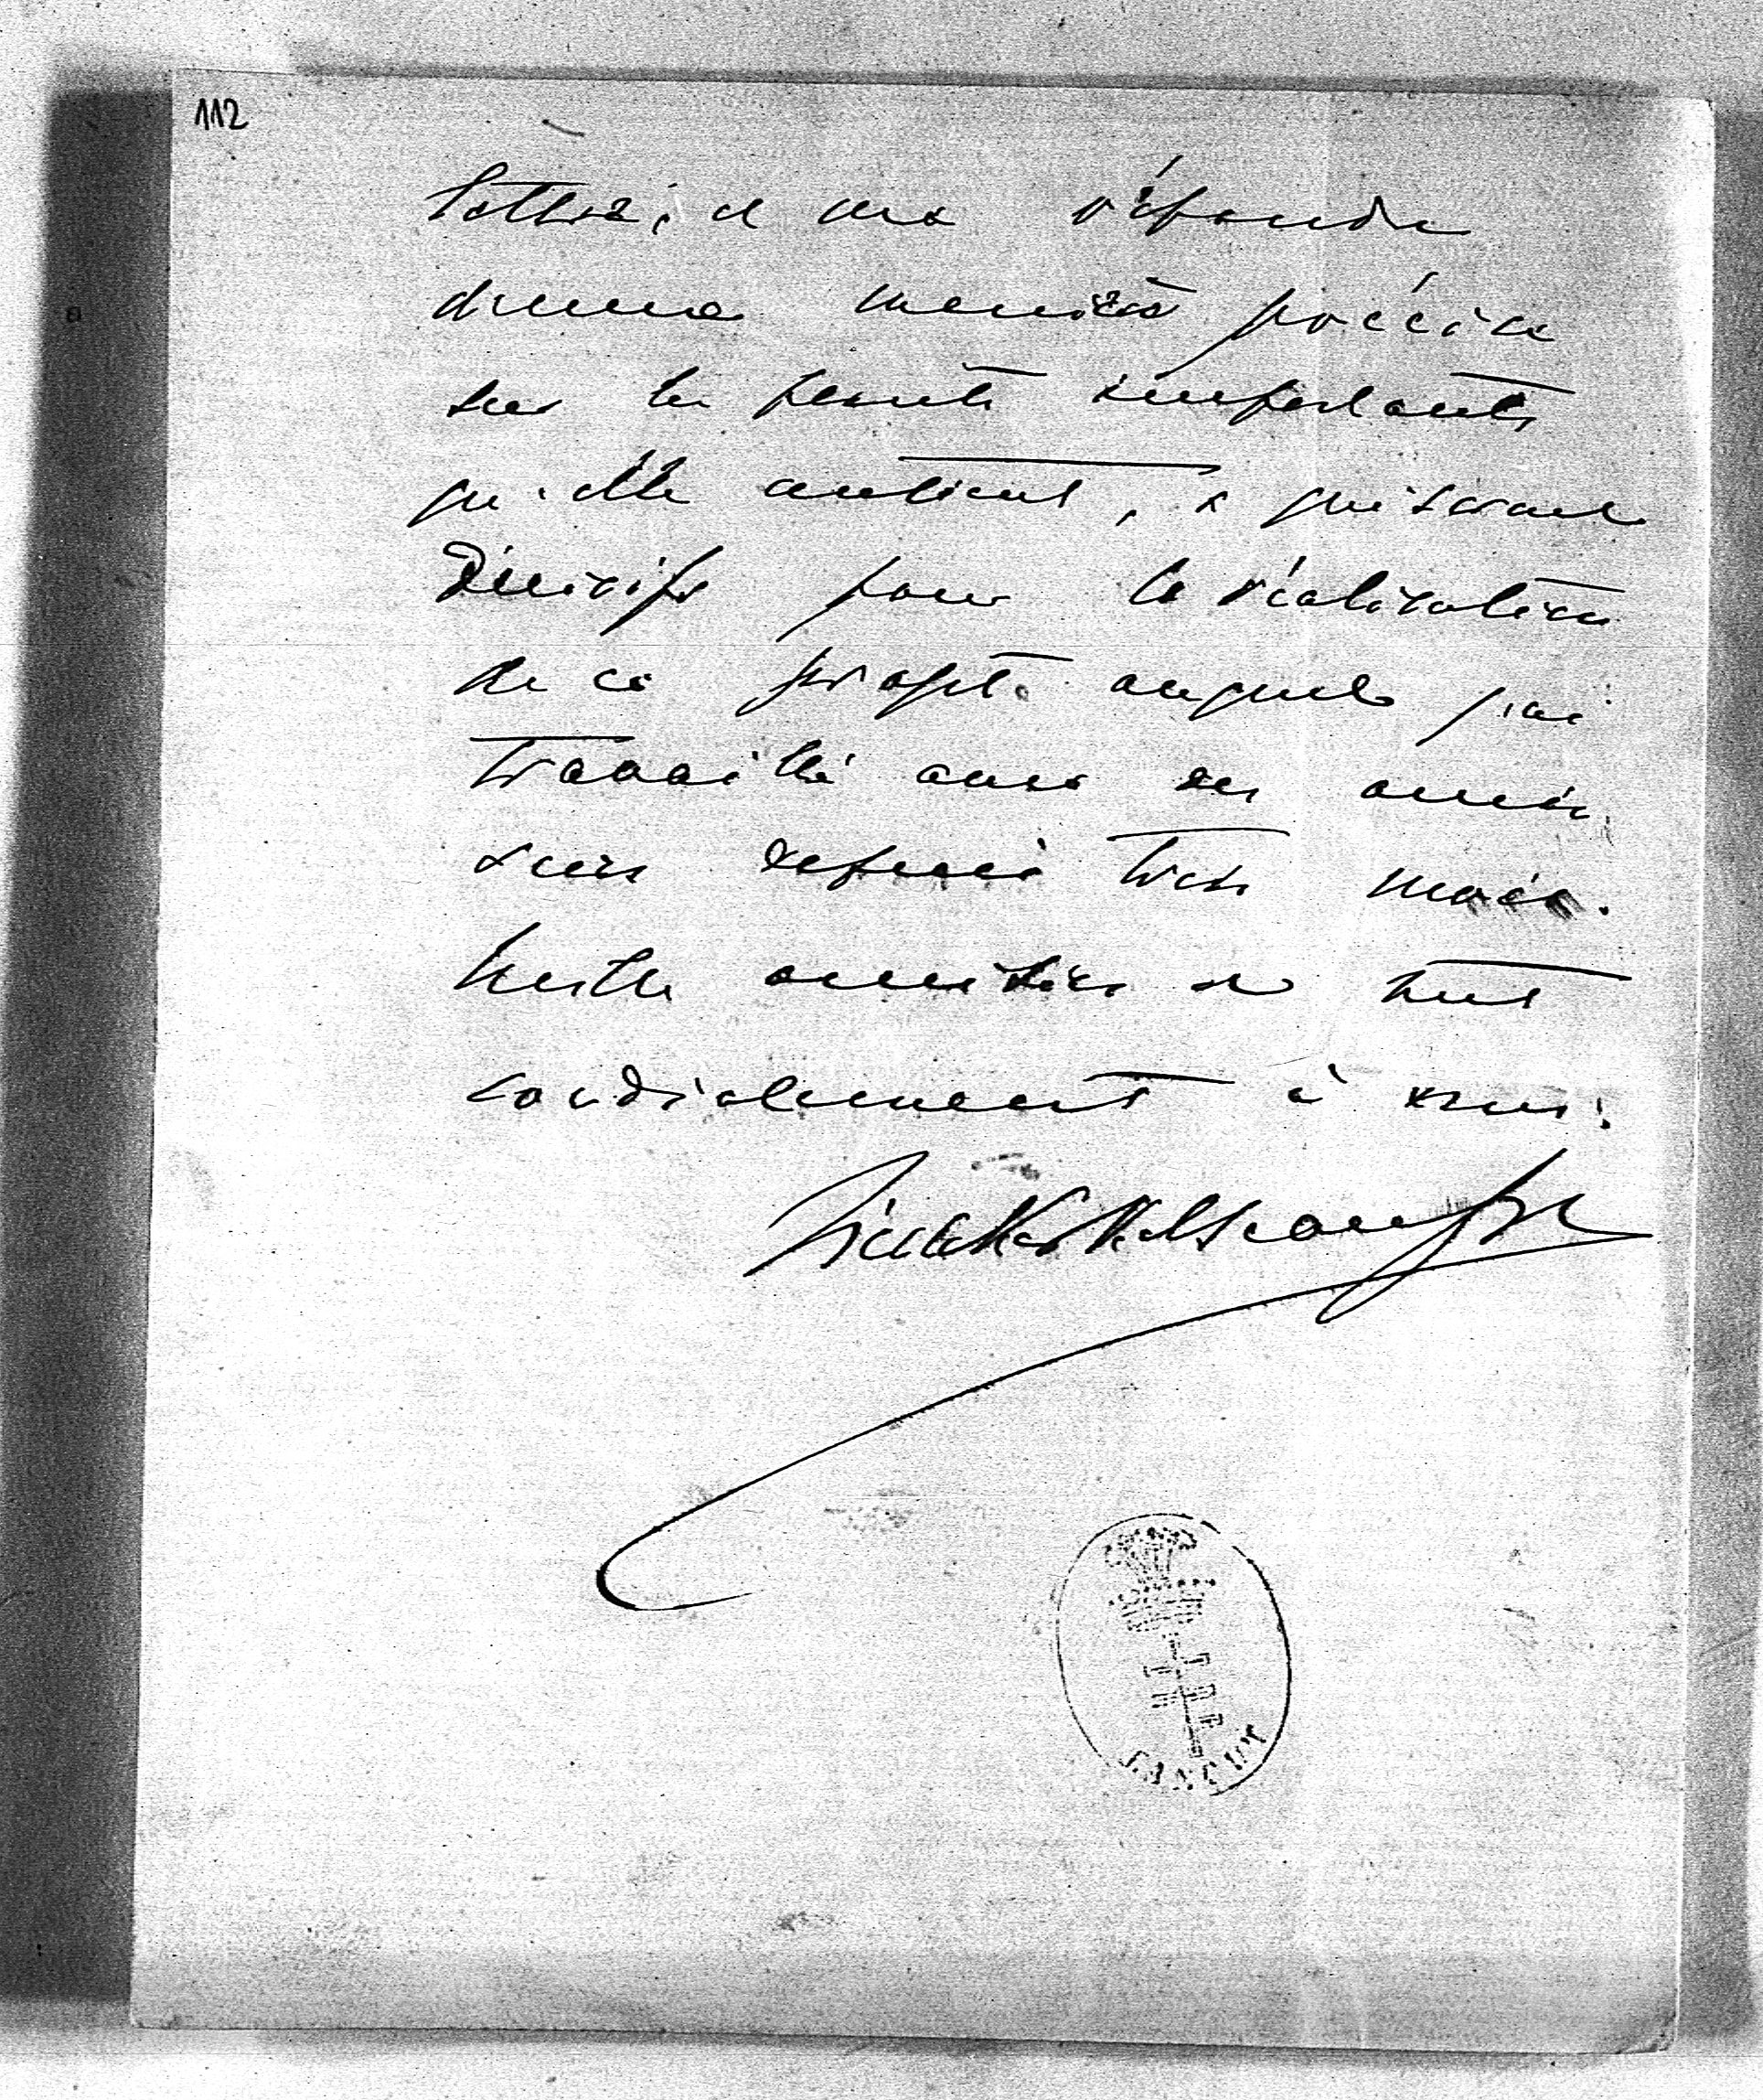 112
lettre, et me répondre
d'une manière précise
sur les points importants
qu'elle contient, & qui seront
décisifs pour la réalisation
de ce projet auquel j'ai
travaillé avec des amis
sûrs depuis trois mois.
Mille amitiés et tout
cordialement à vous.
LANCUT